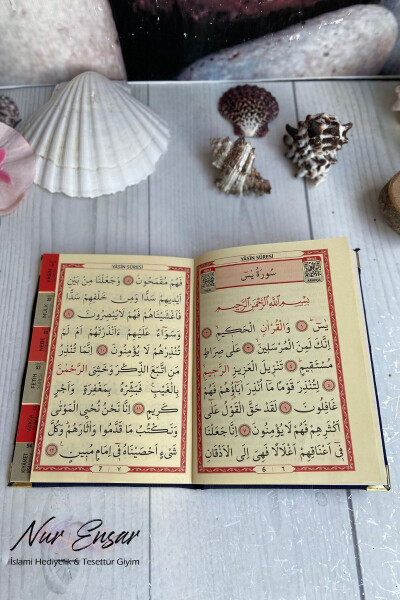 YÂSÎN SÛRESİ
سُورَةُ يٰسٓ
بِسْمِ اللّٰهِ الرَّحْمٰنِ الرَّحِيمِ
يٰسٓ ۚ ﴿١﴾ وَالْقُرْاٰنِ الْحَكِيمِ ۙ ﴿٢﴾
اِنَّكَ لَمِنَ الْمُرْسَلِينَ ۙ ﴿٣﴾ عَلٰى صِرَاطٍ
مُسْتَقِيمٍ ۜ ﴿٤﴾ تَنْزِيلَ الْعَزِيزِ الرَّحِيمِ ۙ
﴿٥﴾ لِتُنْذِرَ قَوْمًا مَٓا اُنْذِرَ اٰبَٓاؤُ۬هُمْ فَهُمْ
غَافِلُونَ ﴿٦﴾ لَقَدْ حَقَّ الْقَوْلُ عَلٰٓى
اَكْثَرِهِمْ فَهُمْ لَا يُؤْمِنُونَ ﴿٧﴾ اِنَّا جَعَلْنَا
فِٓي اَعْنَاقِهِمْ اَغْلَالًا فَهِيَ اِلَى الْاَذْقَانِ
6 ٦
YÂSÎN SÛRESİ
فَهُمْ مُقْمَحُونَ ﴿٨﴾ وَجَعَلْنَا مِنْ بَيْنِ
اَيْدِيهِمْ سَدًّا وَمِنْ خَلْفِهِمْ سَدًّا
فَاَغْشَيْنَاهُمْ فَهُمْ لَا يُبْصِرُونَ ﴿٩﴾
وَسَوَٓاءٌ عَلَيْهِمْ ءَاَنْذَرْتَهُمْ اَمْ لَمْ
تُنْذِرْهُمْ لَا يُؤْمِنُونَ ﴿١٠﴾ اِنَّمَا تُنْذِرُ
مَنِ اتَّبَعَ الذِّكْرَ وَخَشِيَ الرَّحْمٰنَ
بِالْغَيْبِۚ فَبَشِّرْهُ بِمَغْفِرَةٍ وَاَجْرٍ
كَرِيمٍ ﴿١١﴾ اِنَّا نَحْنُ نُحْيِ الْمَوْتٰى
وَنَكْتُبُ مَا قَدَّمُوا وَاٰثَارَهُمْۜ وَكُلَّ
شَيْءٍ اَحْصَيْنَاهُ فِٓي اِمَامٍ مُبِينٍ۟ ﴿١٢﴾
7 ٧
YÂSÎN
MÜLK
FETİH
Nur Ensar
İslami Hediyelik & Tesettür Giyim